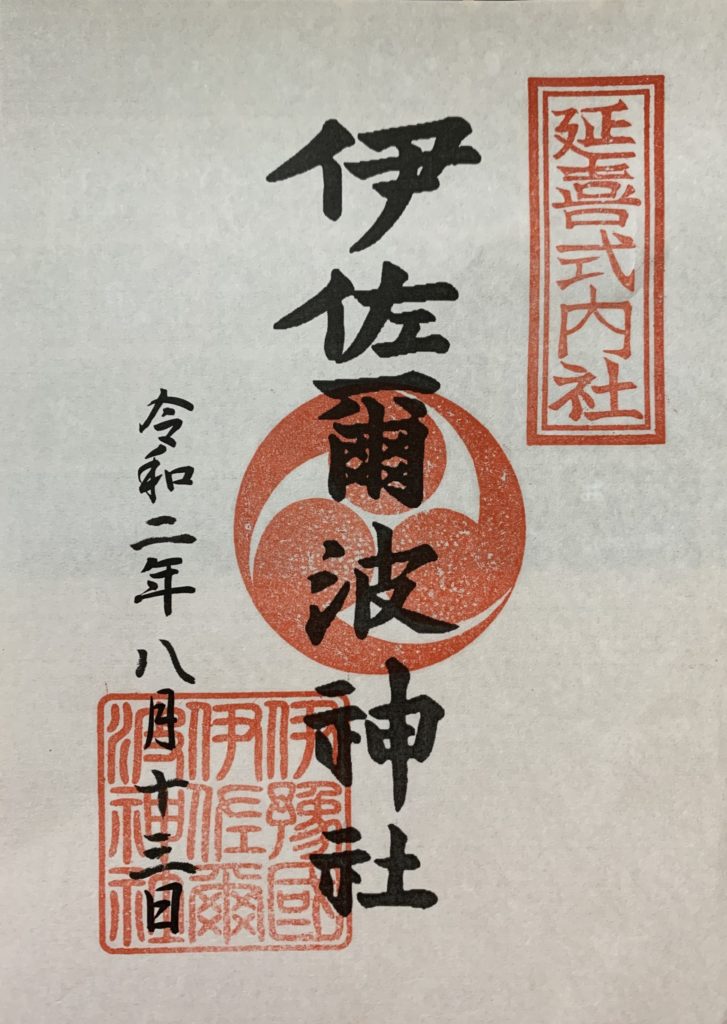 延喜式内社
伊佐爾波神社
令和二年八月十三日
伊豫國
伊佐爾
波神社